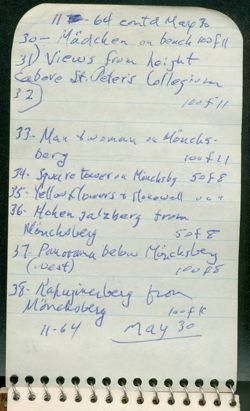 11-64 contd May 30
30- Mädchen on bench 100 f 11
31) Views from height
(above St. Peter's Collegium
32)
100 f 11
33- Man & woman on Mönchs-
berg 100 f 11
34- Square tower on Mönchsbg 50 f 8
35- Yellow flowers & stonewall " " "
36- Hohensalzberg from
Mönchsberg 50 f 8
37- Panorama below Mönchsberg
(west) 100 f 8
38- Kapuzinerberg from
Mönchsberg 100 f
11-64 May 30